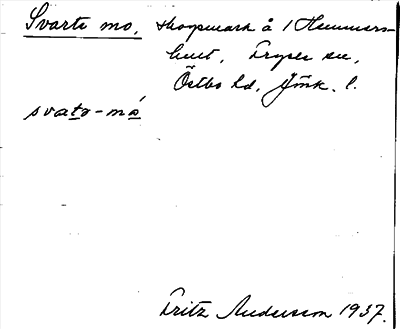 Svarte mo, skogsmark å 1 Hemmers-
hult, Fryele sn,
Östbo hd, Jönk. l.
svata-mó
Fritz Anderson 1937.